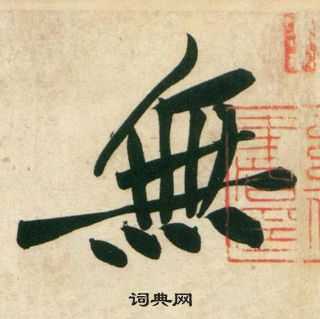 無
词典网